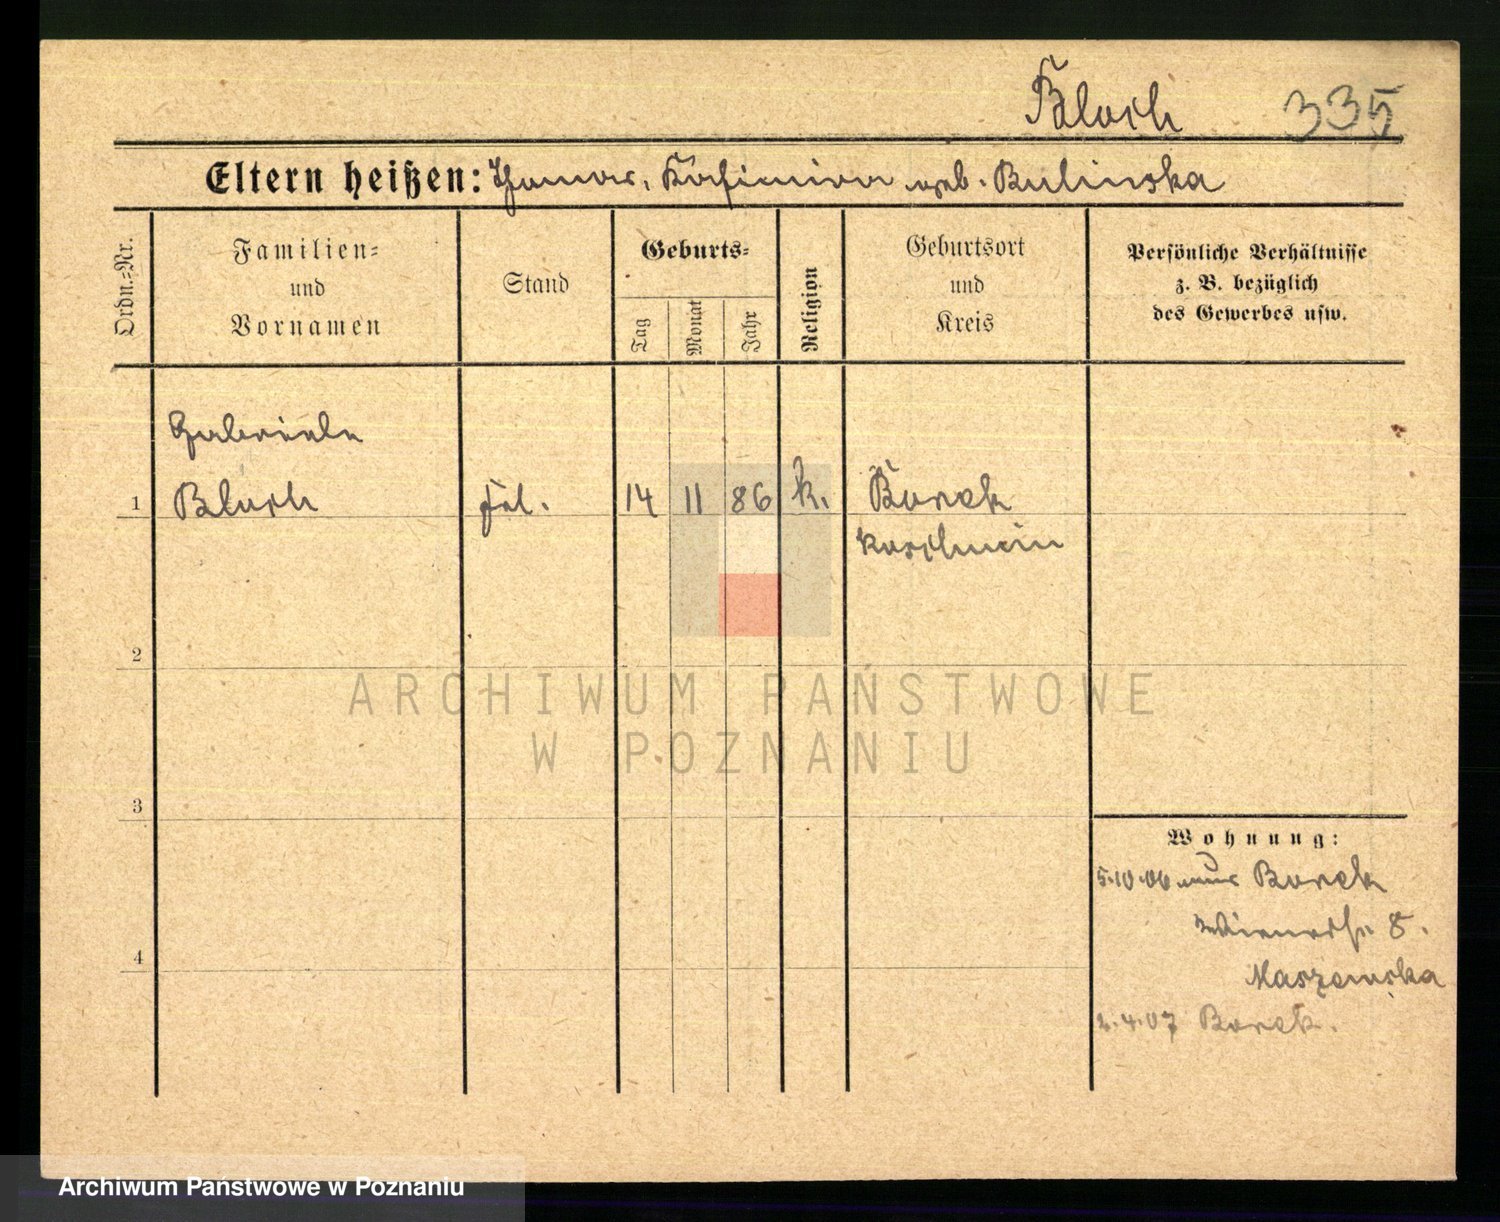 Bloch 335
Eltern heißen: Thomas, Kasimira geb. Bulinska
Ordn.=Nr.
Familien=
und
Vornamen
Stand
Geburts=
Tag
Monat
Jahr
Religion
Geburtsort
und
Kreis
Persönliche Verhältnisse
z. B. bezüglich
des Gewerbes usw.
Gabriele
1 Bloch Frl. 14 11 86 k. Borek
Koschmin
2
ARCHIWUM PAŃSTWOWE
W POZNANIU
3
Wohnung:
5.10.06 aus Borek
8.
4
Maszewska
2.4.07 Borek.
Archiwum Państwowe w Poznaniu